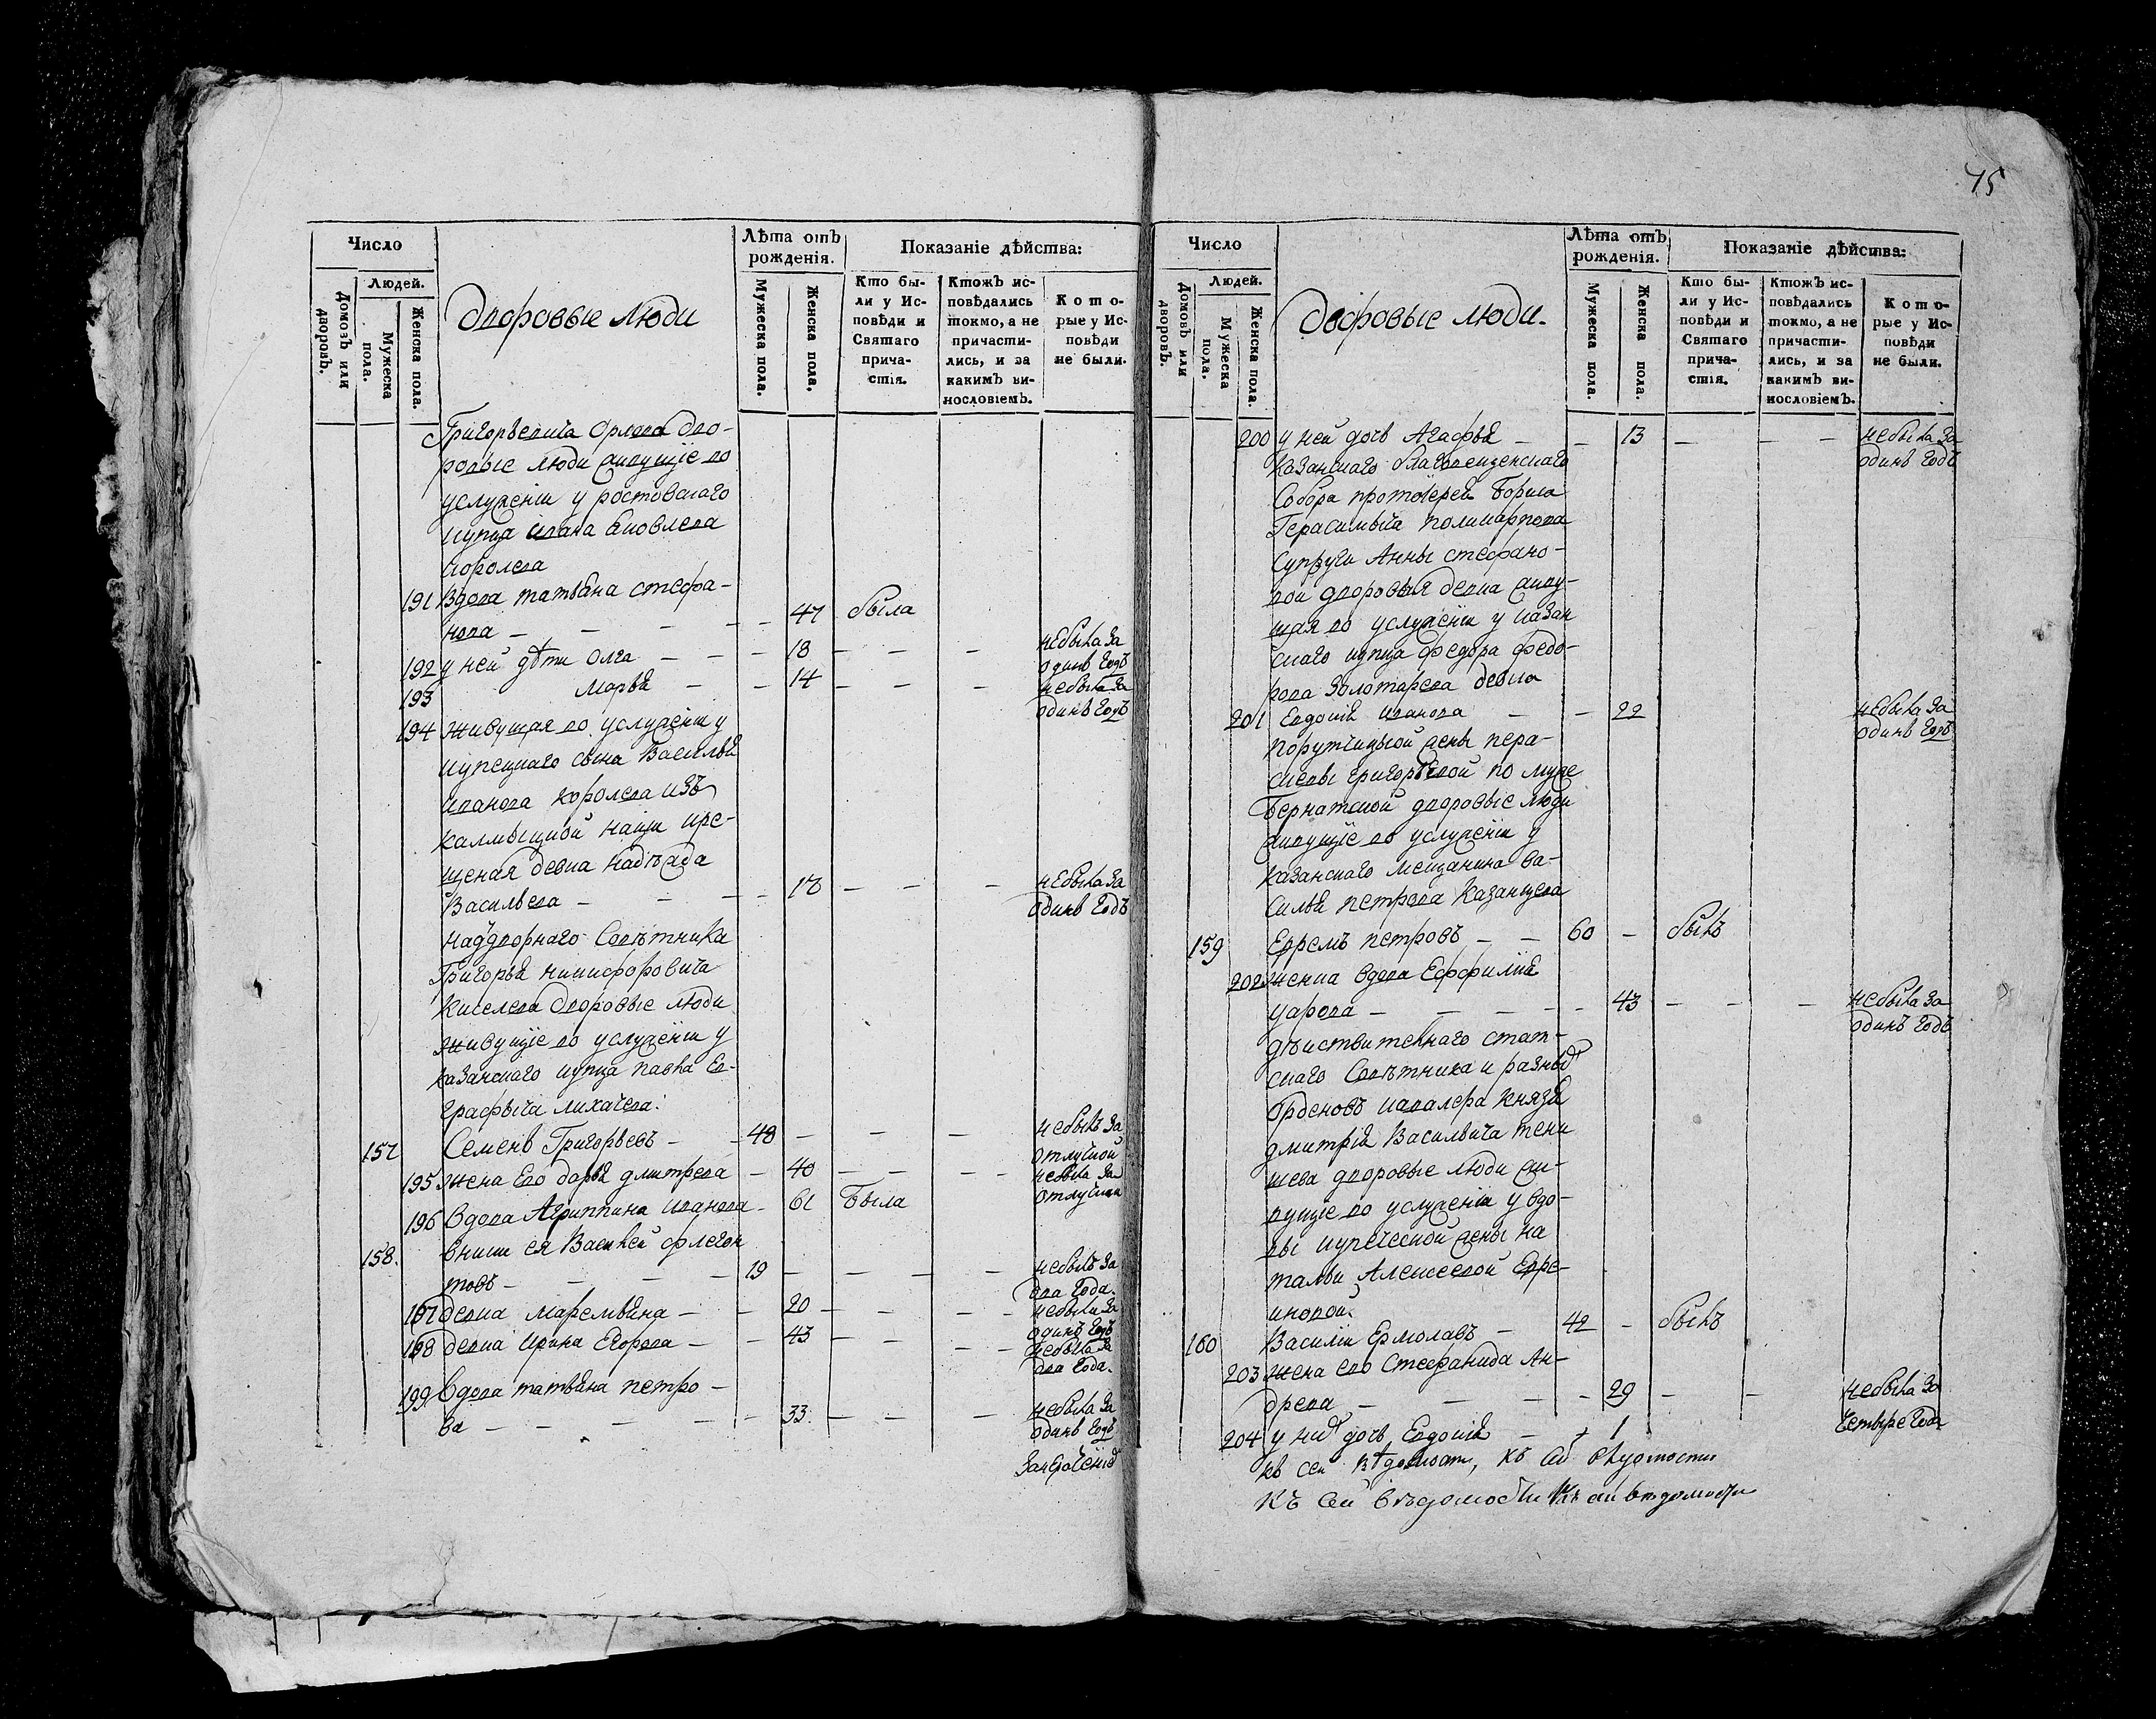 Число
Людей.
Домовъ или дворовъ.
Мужеска пола.
Женска пола.
Дворовые люди
Лѣта отъ рожденія.
Мужеска пола.
Женска пола.
Показаніе дѣйства:
Кто бы-
ли у Ис-
повѣди и
Святаго
прича-
стія.
Ктожъ ис-
повѣдались
токмо, а не
причасти-
лись, и за
какимъ ви-
нословіемъ.
Кото-
рые у Ис-
повѣди
не были.
Григорьевича Орлова дво-
ровые люди живущіе во
услуженіи у ростовскаго
купца Ивана Яковлева
Королева
191 Вдова татьяна стефа-
нова - - - - 47 была
192 у ней дѣти Олга - - - 18 - - - небыла За
одинъ годъ
193 Марья - - 14 - - - небыла За
одинъ годъ
194 живущая во услуженіи у
купецкаго сына Василья
иванова королева изъ
калмыцкой націи кре-
щеная девка надѣжда
Васильева - - - - 18 - - - небыла За
одинъ годъ
надворнаго Советника
Григорья никифоровича
Киселева дворовые люди
живущіе во услуженіи у
казанскаго купца павла Ев-
графыча лихачева:
157 Семенъ Григорьевъ - - 48 - - - небылъ За
отлучкой
195 жена Его дарья дмитрева - 40 - - - небыла За
отлучкой
196 вдова Агриппина иванова - 61 Была
158. внукъ ея Василей флегон
товъ - - - - 19 - - - - небылъ За
два года.
197 девка Маремьяна - - 20 - - - небыла За
одинъ годъ
198 девка ирина Егорова - - 43 - - - небыла За
два года.
199 Вдова татьяна петро-
ва - - - - - 33 - - - небыла За
одинъ годъ
75
Число
Людей.
Домовъ или дворовъ.
Мужеска пола.
Женска пола.
Дворовые люди.
Лѣта отъ рожденія.
Мужеска пола.
Женска пола.
Показаніе дѣйства:
Кто бы-
ли у Ис-
повѣди и
Святаго
прича-
стія.
Ктожъ ис-
повѣдались
токмо, а не
причасти-
лись, и за
какимъ ви-
нословіемъ.
Кото-
рые у Ис-
повѣди
не были.
200 у ней дочь Агафья - - 13 - - - небыла За
одинъ годъ
Казанскаго благовещенскаго
Собора протоіерея Бориса
Герасимыча поликарпова
Супруги Анны стефано-
вой дворовыя девка живу-
щая во услуженіи у казан
скаго купца федора федо-
рова Золотарева девка
201 Евдокія иванова - - 22 небыла За
одинъ годъ
порутчицкой жены пера-
скевы григорьевой по муже
Бернатской дворовые люди
живущіе во услуженіи у
казанскаго мещанина ва-
силья петрова казанцева
159 Ефремъ петровъ - - 60 - былъ
202 женка вдова Еффимія
уарова - - - - - 43 - - - небыла За
одинъ годъ
дѣиствителнаго стат-
скаго Советника и разныхъ
Орденовъ кавалера князя
дмитрія Васильича тени
шева дворовые люди жи-
вущіе во услуженіи у вдо-
вы купеческой жены на
тальи Алексеевой Ефре-
мовой.
160 Василіи Ермолаевъ - 42 - былъ
203 жена его Стефанида Ан-
древа - - - - 29 - - небыла За
четыре года
204 у нихъ дочь Евдокія - - 1
къ сей вѣдомости, къ сей
Къ сей вѣдомости къ сей ведомости